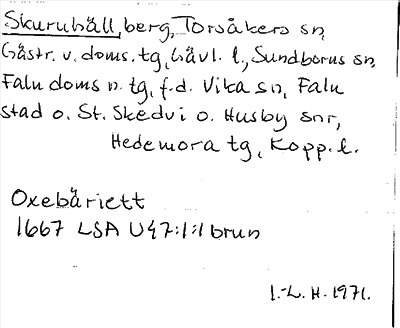 Skuruhäll, berg, Torsåkers sn,
Gästr. v. doms. tg, Gävl. l., Sundborns sn,
Falu doms n. tg, f.d. Vika sn, Falu
stad o. St. Skedvi o. Husby snr,
Hedemora tg, Kopp. l.
Oxebäriett
1667 LSA U47:1:1 brun
I.-L. H. 1971.